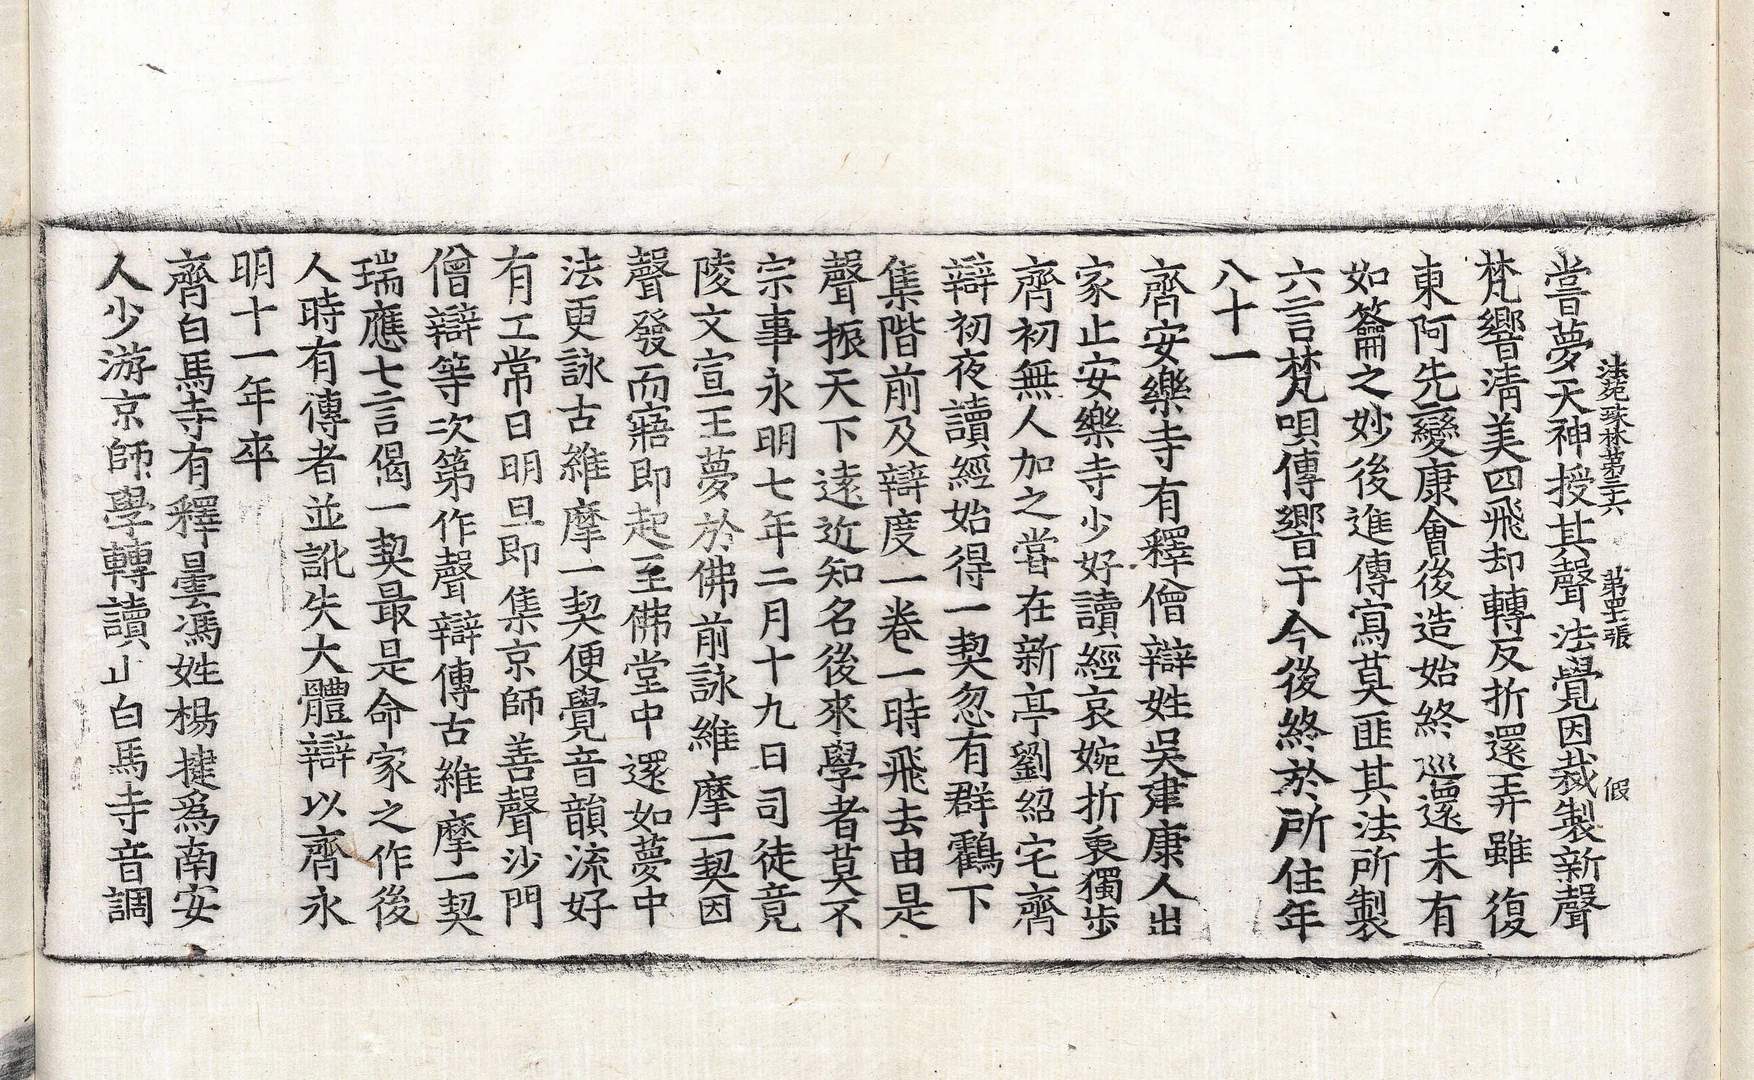 法苑珠林第三十六 第四十二張 假
嘗夢天神授其聲法覺因裁製新聲
梵響清美四飛却轉反折還弄雖復
東阿先變康會後造始終巡還未有
如籥之妙後進傳寫莫匪其法所製
六言梵唄傳響于今後終於所住年
八十一
齊安樂寺有釋僧辯姓吳建康人出
家止安樂寺少好讀經哀婉折衷獨步
齊初無人加之嘗在新亭劉紹宅齊
辯初夜讀經始得一契忽有群鶴下
集階前及辯度一卷一時飛去由是
聲振天下遠近知名後來學者莫不
宗事永明七年二月十九日司徒竟
陵文宣王夢於佛前詠維摩一契因
聲發而寤即起至佛堂中還如夢中
法更詠古維摩一契便覺音韻流好
有工常日明旦即集京師善聲沙門
僧辯等次第作聲辯傳古維摩一契
瑞應七言偈一契最是命家之作後
人時有傳者並訛失大體辯以齊永
明十一年卒
齊白馬寺有釋曇馮姓楊揵爲南安
人少游京師學轉讀止白馬寺音調